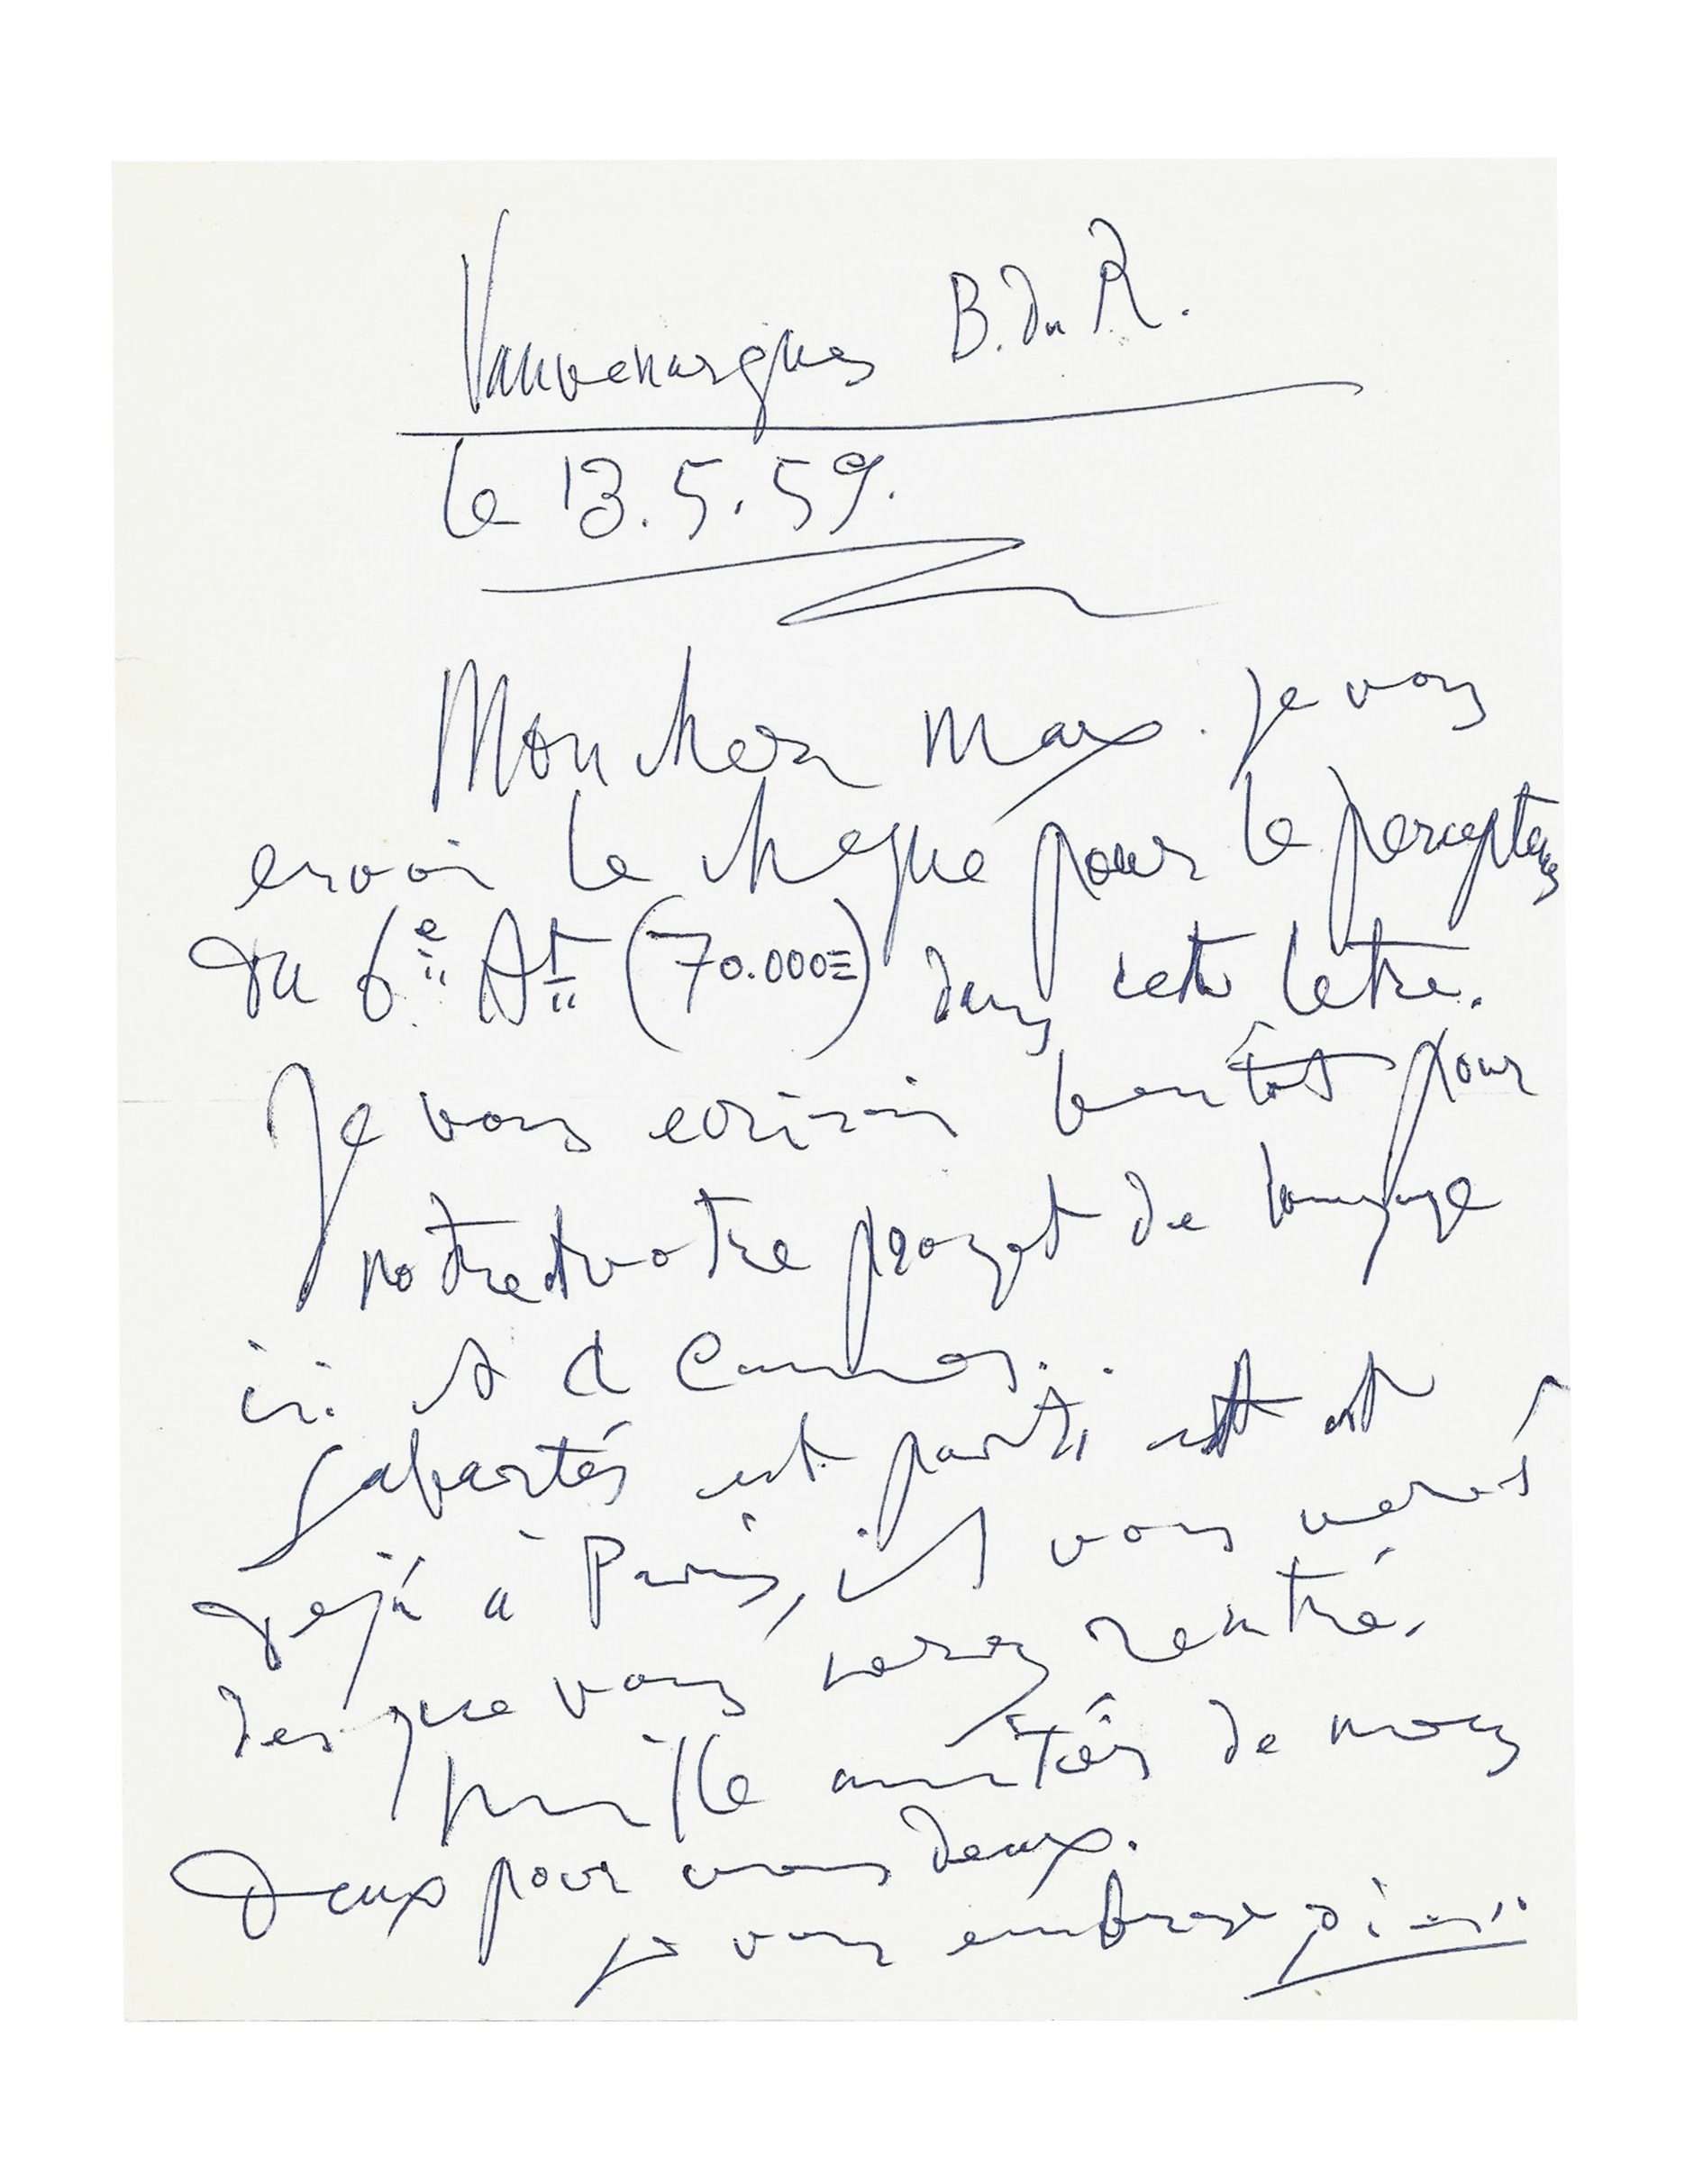 Vauvenargues B. du R.
le 13.5.59.
Mon cher Max. Je vous
envoi le cheque pour le percepteur
du 6e At (70.000=) dans cette letre.
Je vous ecrirai bientôt pour
notre et votre proyet de voyage
ici et a Cannes.
Sabartés est parti et est
dejá à Paris, il vous
des que vous serez rentré.
mille amitiés de nous
deux pour vous deux.
je vous embrase